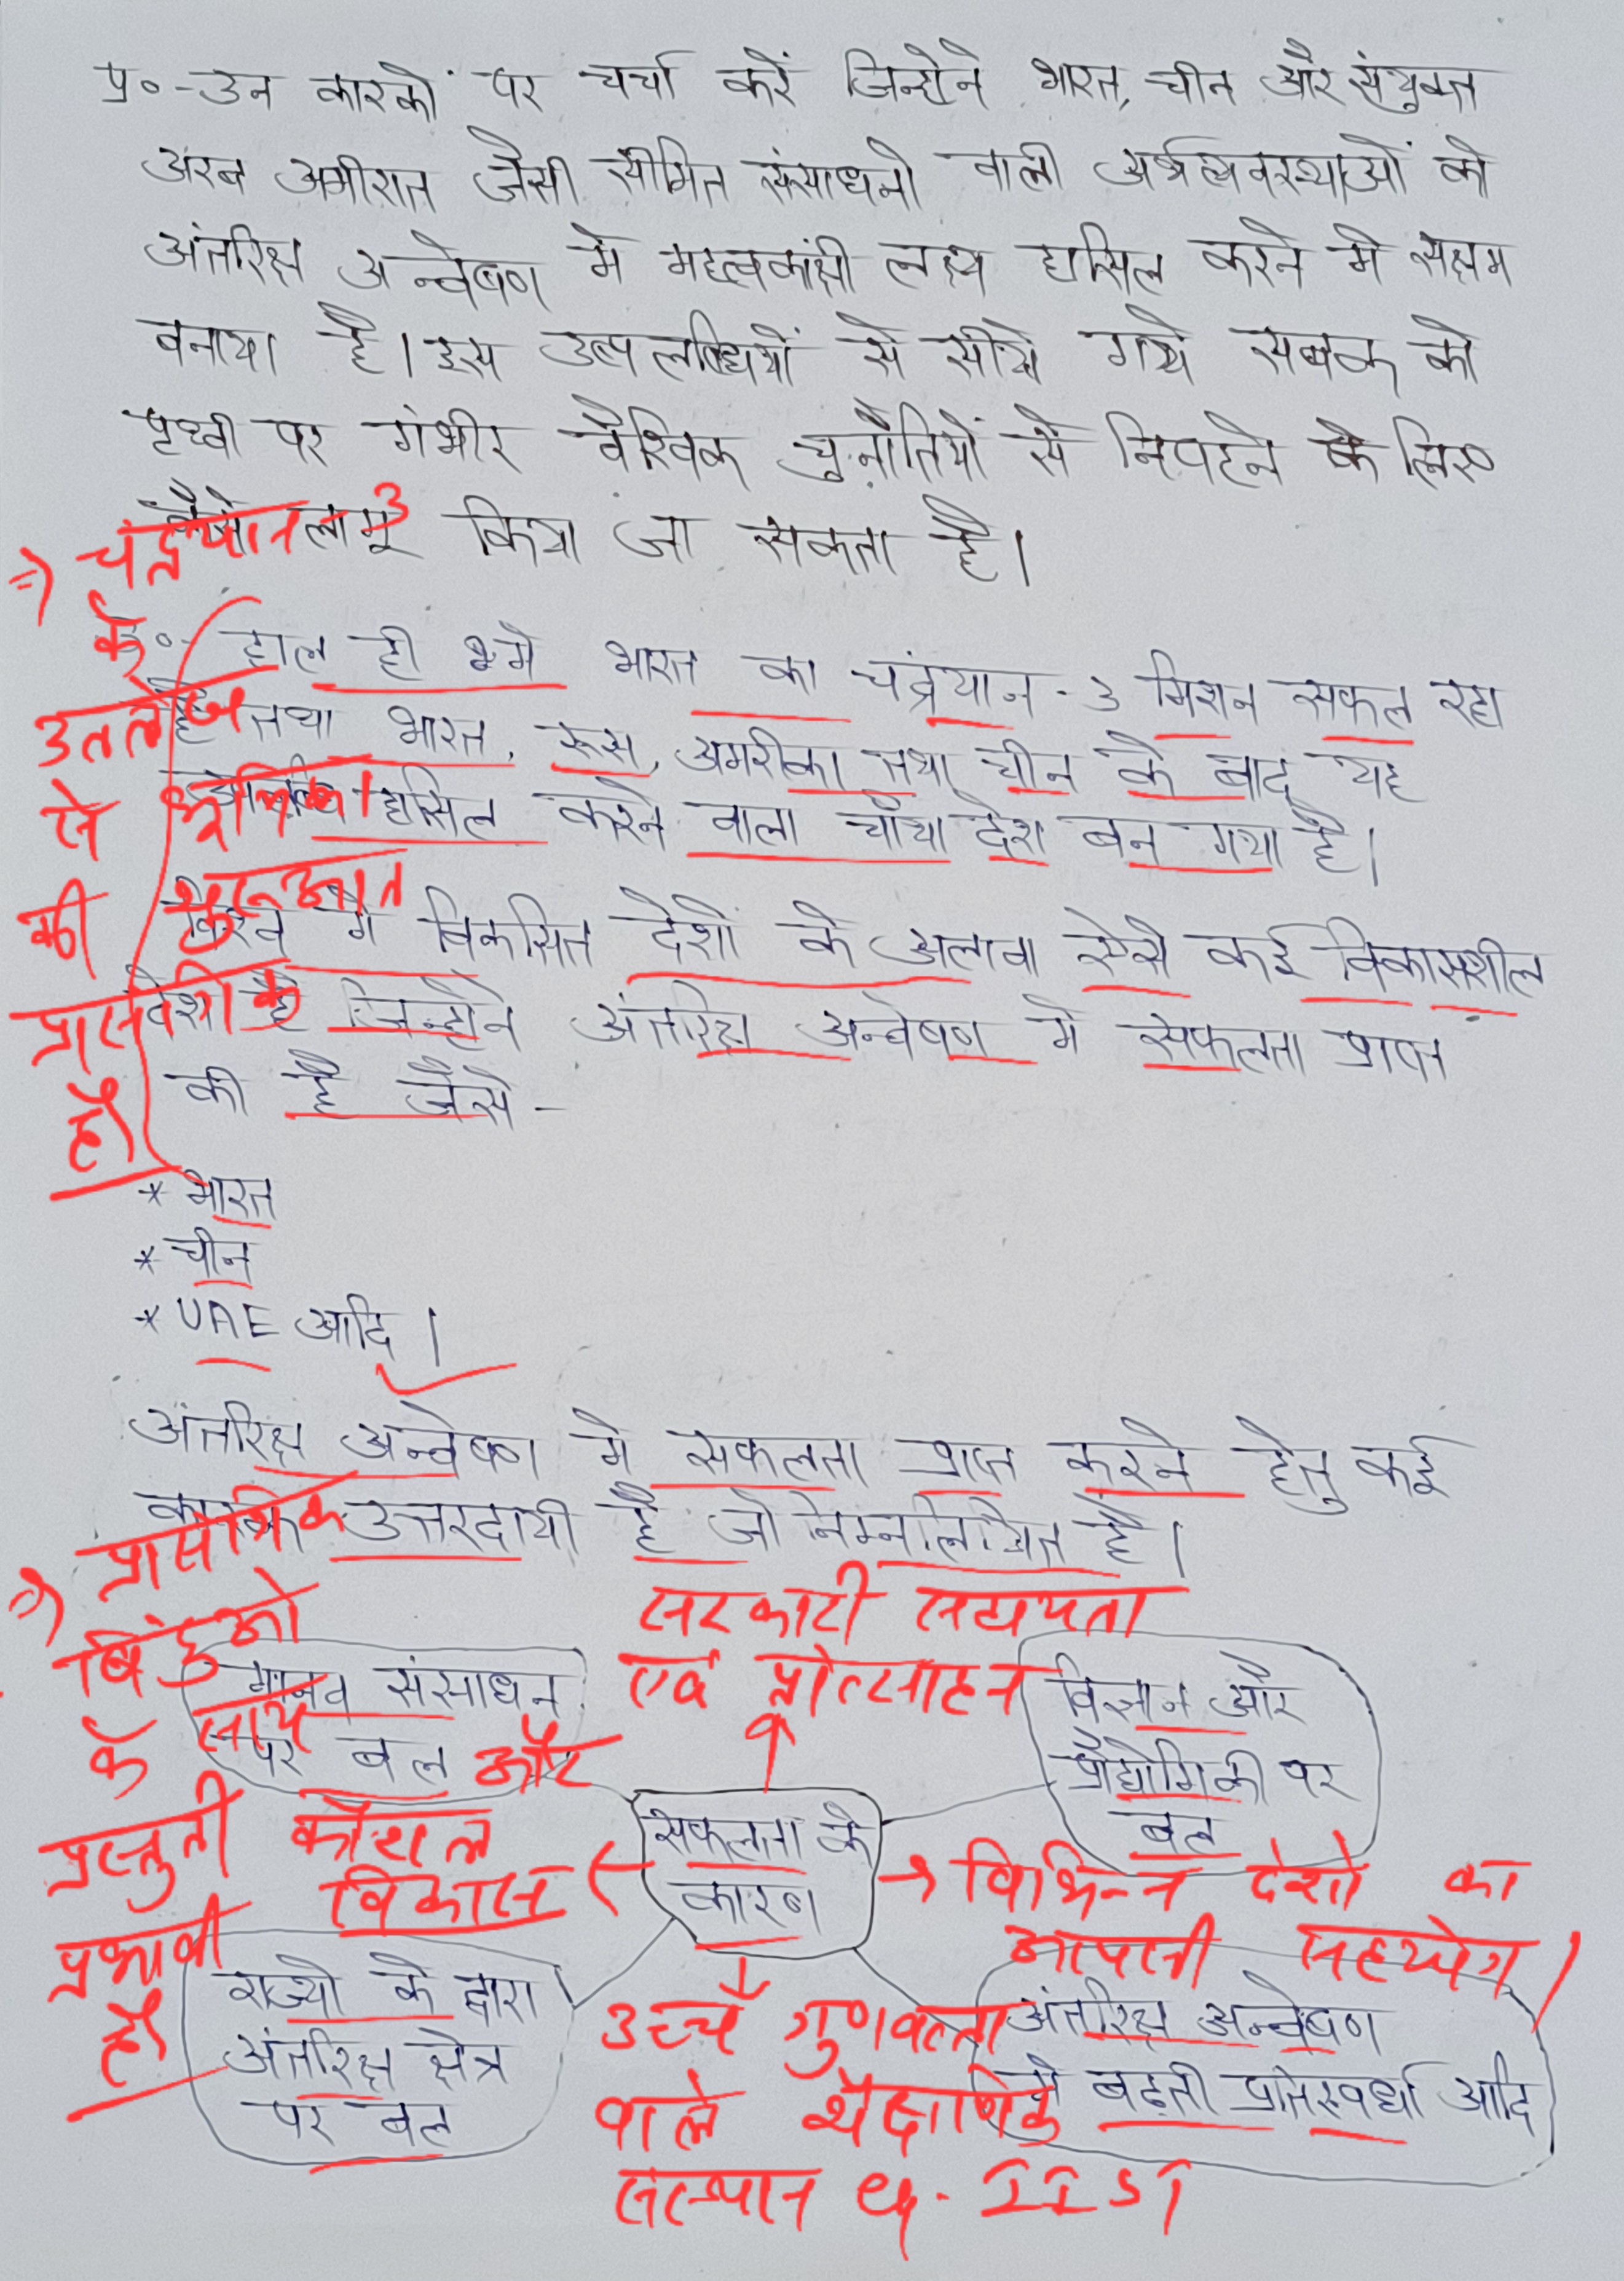 प्र०-उन कारको पर चर्चा करें जिन्होने भारत, चीन और संयुक्त
अरब अमीरात जैसी सीमित संसाधनो वाली अर्थव्यवस्थाओं को
अंतरिक्ष अन्वेषण मे महत्वकांक्षी लक्ष्य हासिल करने मे सक्षम
बनाया है। इस उपलब्धियों से सीखे गये सबक को
पृथ्वी पर गंभीर वैश्विक चुनौतियों से निपटने के लिए
कैसे लागू किया जा सकता है।
⇒ चंद्रयान 3
के
उल्लेख
से भूमिका
की शुरूआत
प्रासंगिक
है।
उ०- हाल ही मे भारत का चंद्रयान-3 मिशन सफल रहा
है तथा भारत, रूस, अमरीका तथा चीन के बाद यह
हासिल करने वाला चौथा देश बन गया है।
विश्व मे विकसित देशों के अलावा ऐसे कई विकासशील
देश है जिन्होने अंतरिक्ष अन्वेषण मे सफलता प्राप्त
की है जैसे -
* भारत
* चीन
* UAE आदि।
अंतरिक्ष अन्वेषण मे सफलता प्राप्त करने हेतु कई
कारक उत्तरदायी है जो निम्नलिखित है।
⇒ प्रासंगिक
बिंदुओ
के साथ
प्रस्तुती
प्रभावी
है।
सरकारी सहायता
एवं प्रोत्साहन
मानव संसाधन
पर बल
विज्ञान और
प्रौद्योगिकी पर
बल
सफलता के
कारण
और
कौशल
विकास
→ विभिन्न देशो का
आपसी सहयोग।
राज्यो के द्वारा
अंतरिक्ष क्षेत्र
पर बल
उच्च गुणवत्ता
वाले शैक्षणिक
संस्थान eg. IIST
अंतरिक्ष अन्वेषण
मे बढ़ती प्रतिस्पर्धा आदि